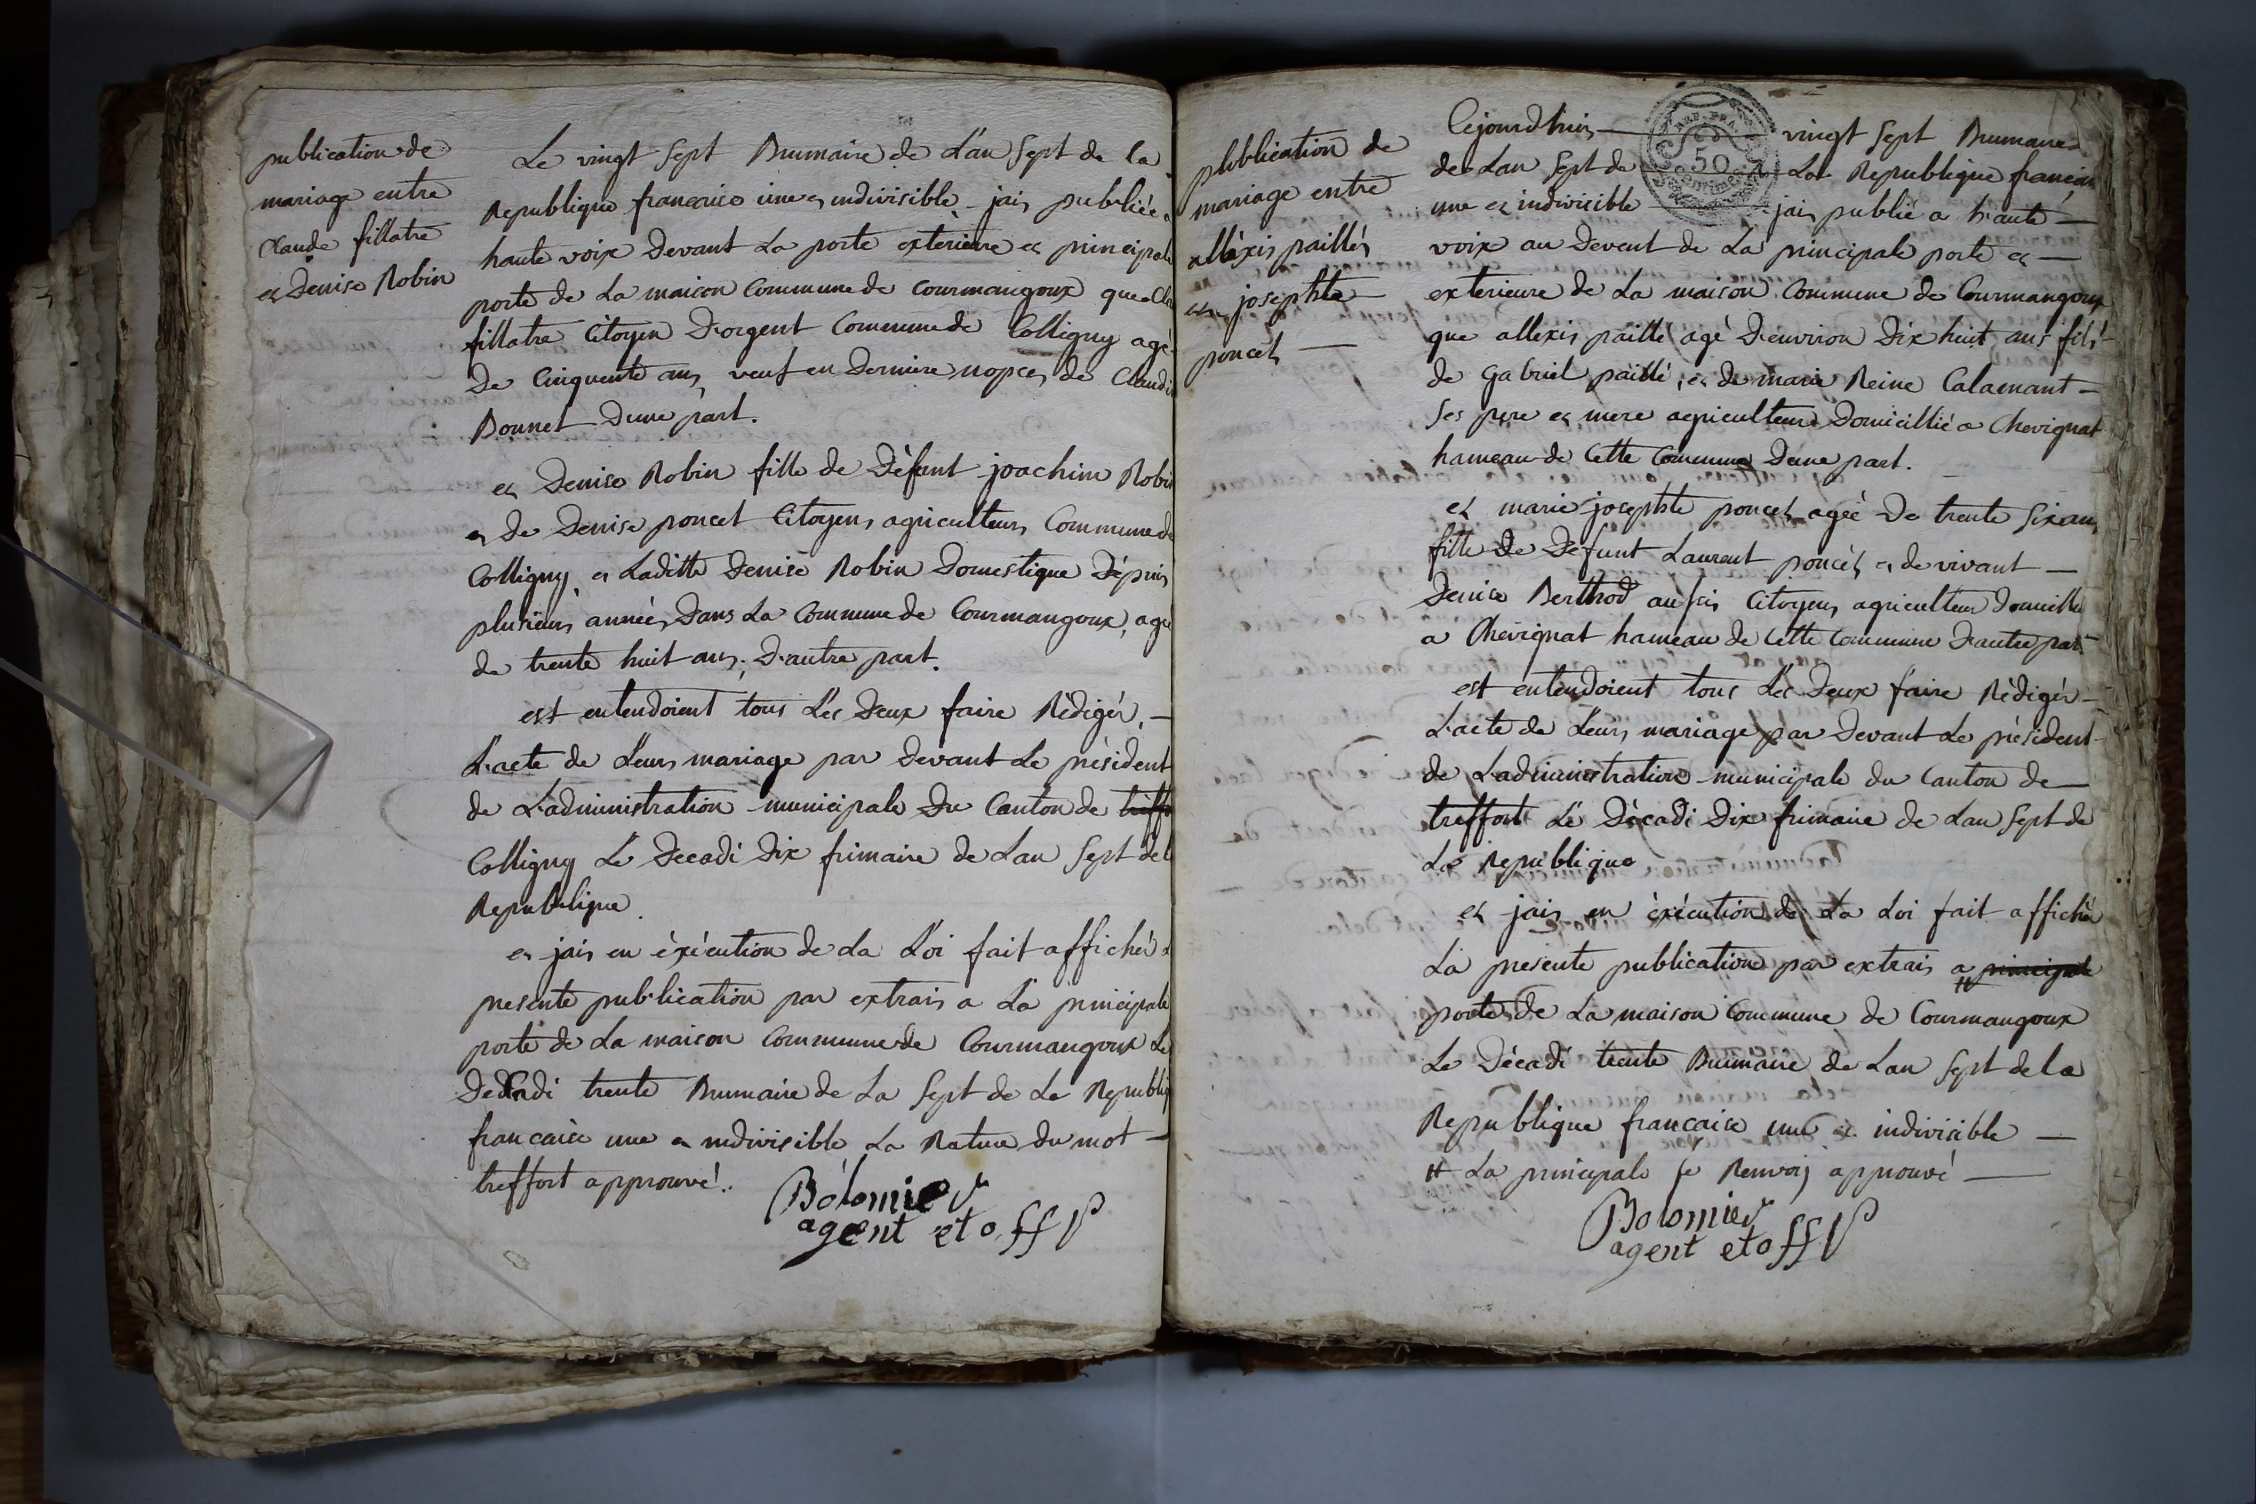 publication de
mariage entre
Claude fillatre
et Denise Robin
Le vingt sept Brumaire de L'an sept de la
Republique francaise une et indivisible jais publiée a
haute voix Devant La porte extérieure et principale
porte de La maison Commune de Courmangoux que Cla
fillatre Citoyen D'orgent Commune de Colligny agé
De Cinquente ans veuf en Derniere nopces de Claudi
Bonnet D'une part.
et Denise Robin fille de Défunt joachim Robin
et De Denise poncet Citoyens agriculteurs Commune de
Colligny et Laditte Denise Robin Domestique Dépuis
plusieurs années Dans La Commune de Courmangoux, agée
de trente huit ans, D'autre part.
est entendoient tous Les Deux faire Rédigér,
L'acte de Leurs mariage par Devant Le président
de L'administration municipale Du Canton de treffo
Colligny Le Decadi Dix frimaire de Lan Sept de L
Republique
et jais en éxécution de La Loi fait affichér
presente publication par extrais a La principale
porte de La maison Commune de Courmangoux Le
Decadi trente Brumaire de La Sept de La Republi
francaise une et indivisible La Rature du mot
treffort approuvé.
Bolomier
agent et off p
50
publication de
mariage entre
alléxis paillés
et josephte
poncét
Cejourdhuis vingt Sept Brumaire
de Lan Sept de La Republique francais
une et indivisible jais publié a haute
voix au Devent de La principale porte et
exterieure de La maison Commune de Courmangoux
que allexis paillé agé D'environ Dix huit ans fils
de gabriel paillé, et de marie Reine Calamant
Ses pere et mere agriculteurs Domicillié a Chevignat
hameau de Cette Commune D'une part.
et marie josephte poncet agée De trente Six ans
fille De Défunt Laurent poncét et de vivant
Denise Berthod aussis Citoyens agriculteurs Domicillié
a Chevignat hameau de Cette Commune D'autre part.
est entendoient tous Les Deux faire Rédigér
L'acte de Leurs mariage par Devant Le président
de L'administration municipale du Canton de
treffort Le Décadi Dix frimaire de Lan Sept de
La Republique
et jais en éxécution de La Loi fait affichér
La presente publication par extrais a principale
porte de La maison Commune de Courmangoux
Le Décadi trente Brumaire de Lan Sept de la
Republique francaise une et indivisible
# La principale Le Renvoi approuvé
Bolomier
agent et off p